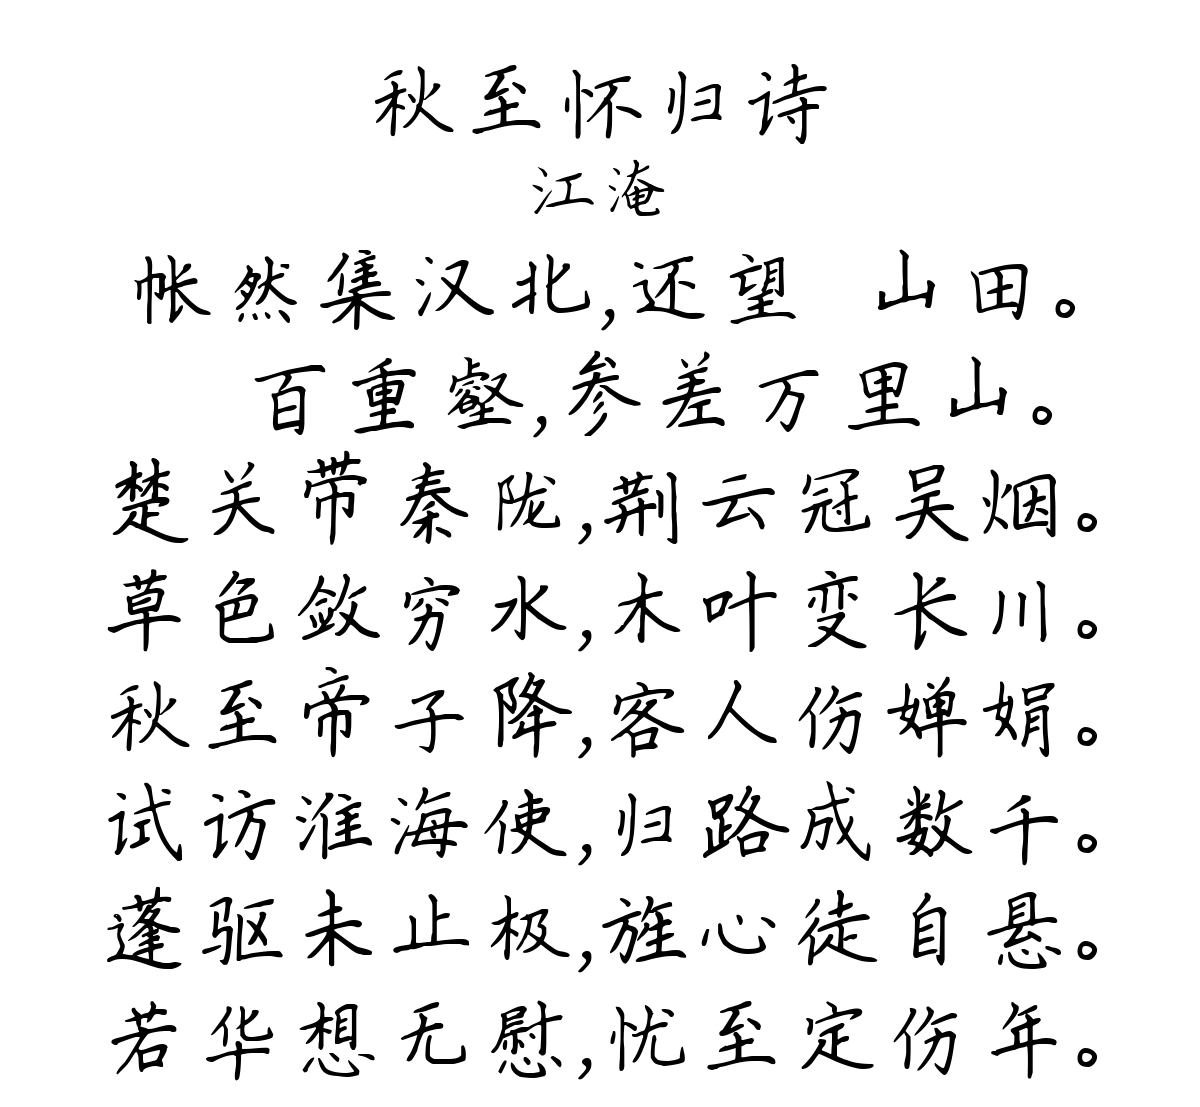 秋至怀归诗
江淹
帐然集汉北,还望 山田。
百重壑,参差万里山。
楚关带秦陇,荆云冠吴烟。
草色敛穷水,木叶变长川。
秋至帝子降,客人伤婵娟。
试访淮海使,归路成数千。
蓬驱未止极,旌心徒自悬。
若华想无慰,忧至定伤年。